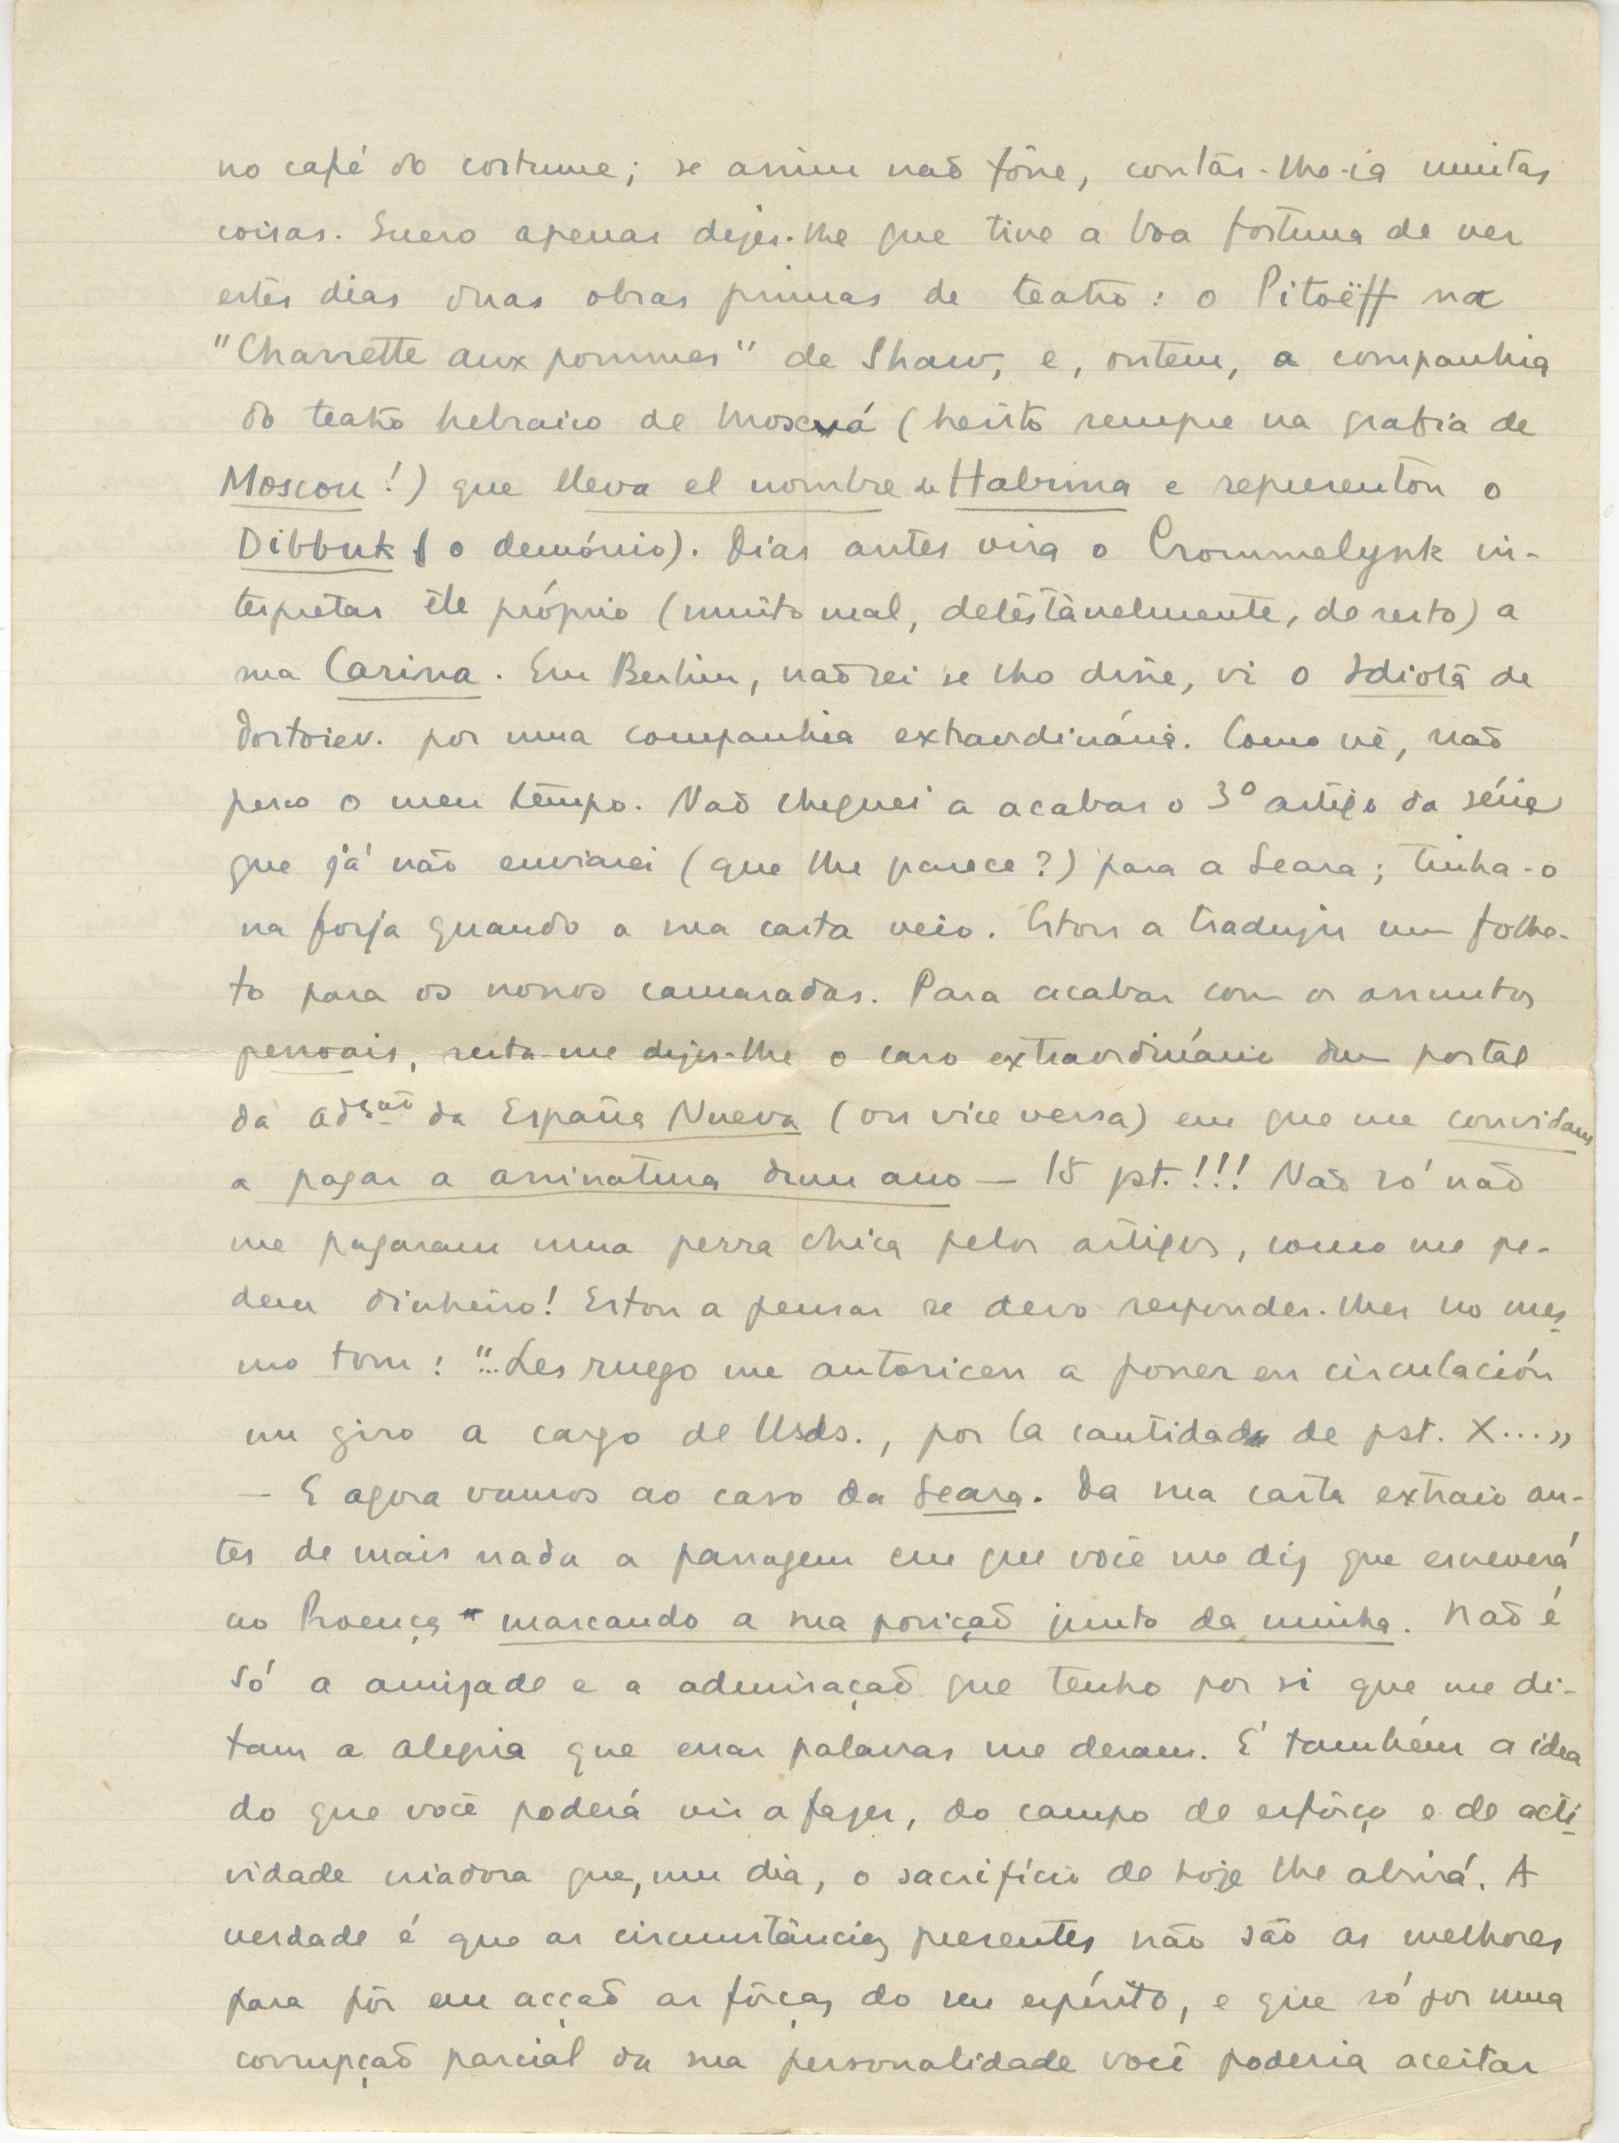 no café do costume; se assim não fôsse, contar-lho-ia muitas
coisas. Quero apenas dizer-lhe que tive a boa fortuna de ver
estes dias duas obras primas de teatro: o Pitoëff na
"Charrette aux pommes" de Shaw, e, ontem, a companhia
do teatro hebraico de Moscuá (hesito sempre na grafia de
Moscou!) que lleva el nombre de Habima e representou o
Dibbuk (o demónio). Dias antes vira o Crommelynk in-
terpretar êle próprio (muito mal, detestàvelmente, de resto) a
sua Carina. Em Berlim, não sei se lho disse, vi o Idiota de
Dostoiev. por uma companhia extraordinária. Como vê, não
perco o meu tempo. Não cheguei a acabar o 3º artigo da série
que já não enviarei (que lhe parece?) para a Seara; tinha-o
na forja quando a sua carta veio. Estou a traduzir um folhe-
to para os nossos camaradas. Para acabar com os assuntos
pessoais, resta-me dizer-lhe o caso extraordinário dum postal
da adção da España Nueva (ou vice versa) em que me convidam
a pagar a assinatura dum ano — 18 pst.!!! Não só não
me pagaram uma perra chica pelos artigos, como me pe-
dem dinheiro! Estou a pensar se devo responder-lhes no mes-
mo tom: "...Les ruego me autoricen a poner en circulación
un giro a cargo de Usds., por la cantidad de pst. X..."
— E agora vamos ao caso da Seara. Da sua carta extraio an-
tes de mais nada a passagem em que você me diz que escreverá
ao Proença marcando a sua posição junto da minha. Não é
só a amizade e a admiração que tenho por si que me di-
tam a alegria que essas palavras me deram. É também a idea
do que você poderá vir a fazer, do campo de esfôrço e de acti-
vidade criadora que, um dia, o sacrifício de hoje lhe abrirá. A
verdade é que as circunstâncias presentes não são as melhores
para pôr em acção as fôrças do seu espírito, e que só por uma
corrupção parcial da sua personalidade você poderia aceitar